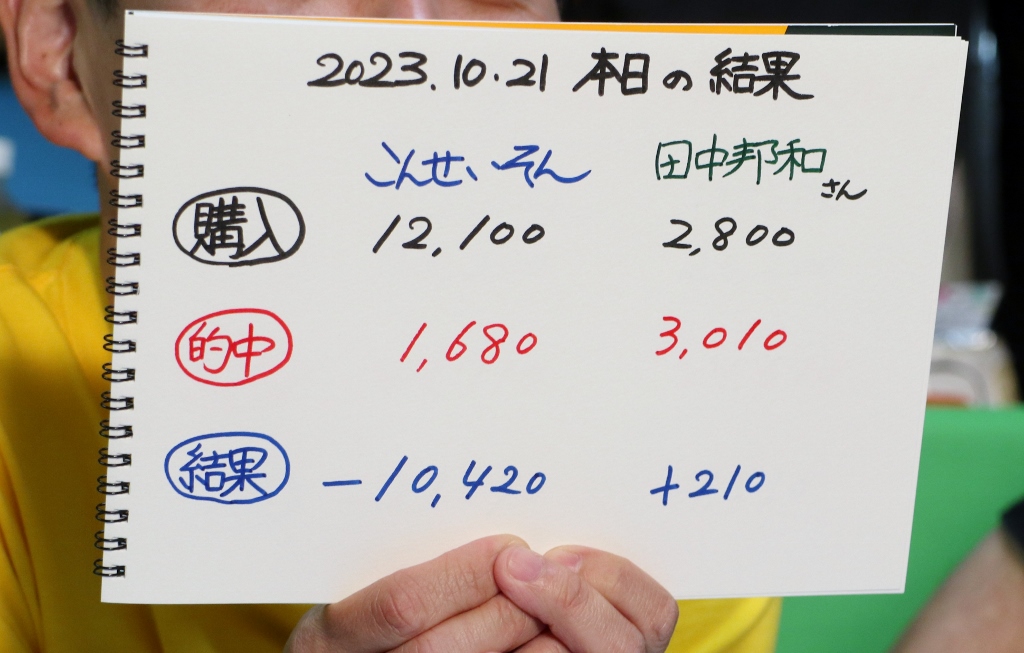 2023.10.21 本日の結果
こんせいそん 田中邦和さん
購入 12,100 2,800
的中 1,680 3,010
結果 -10,420 +210